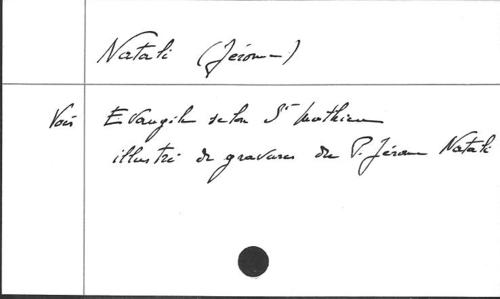 Natali (Jérome)
Voir Evangile selon St Mathieu
illustré de gravures du P. Jérome Natali